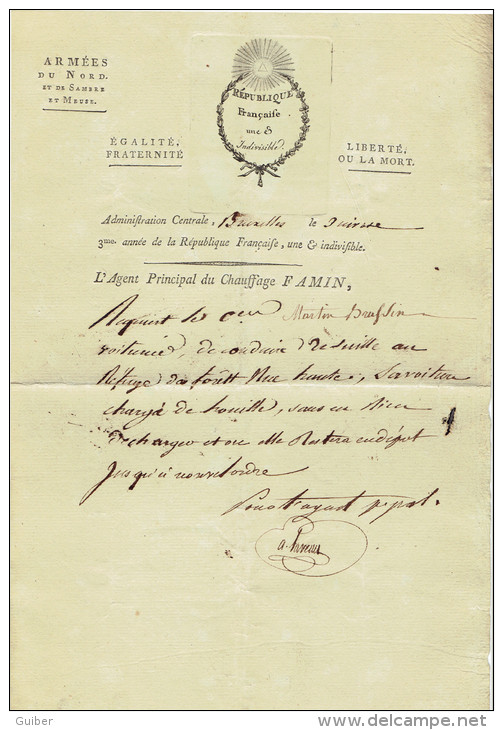 ARMÉES
DU NORD.
ET DE SAMBRE
ET MEUSE.
RÉPUBLIQUE
Françaiſe
une &
Indiviſible.
ÉGALITÉ,
FRATERNITÉ
LIBERTÉ,
OU LA MORT.
Adminiſtration Centrale, Bruxelles le
3me. année de la République Françaiſe, une & indiviſible.
L'Agent Principal du Chauffage FAMIN,
Requiert le Martin
voiturier, de conduire de suitte au
Refuge rue haute, voiture
chargé de houille, sans en Rien
decharger et ou elle Restera en dépot
Jusqu'à nouvel ordre
Pour l'agent pal.
Guiber
www.delcampe.net